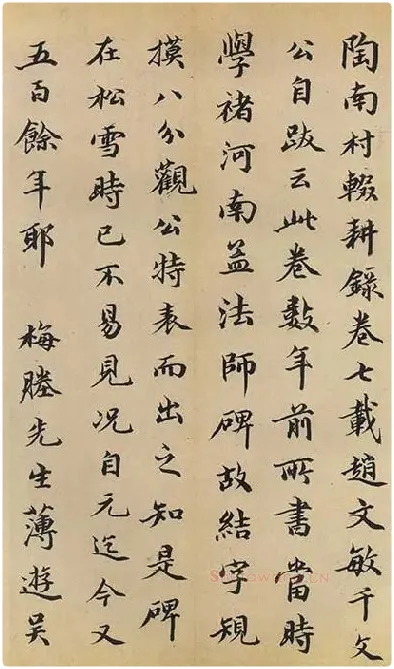 陶南村輟耕錄卷七載趙文敏千文
公自跋云此卷數年前所書當時
學褚河南孟法師碑故結字規
摸八分觀公特表而出之知是碑
在松雪時已不易見况自元迄今又
五百餘年耶　梅塍先生薄遊吴